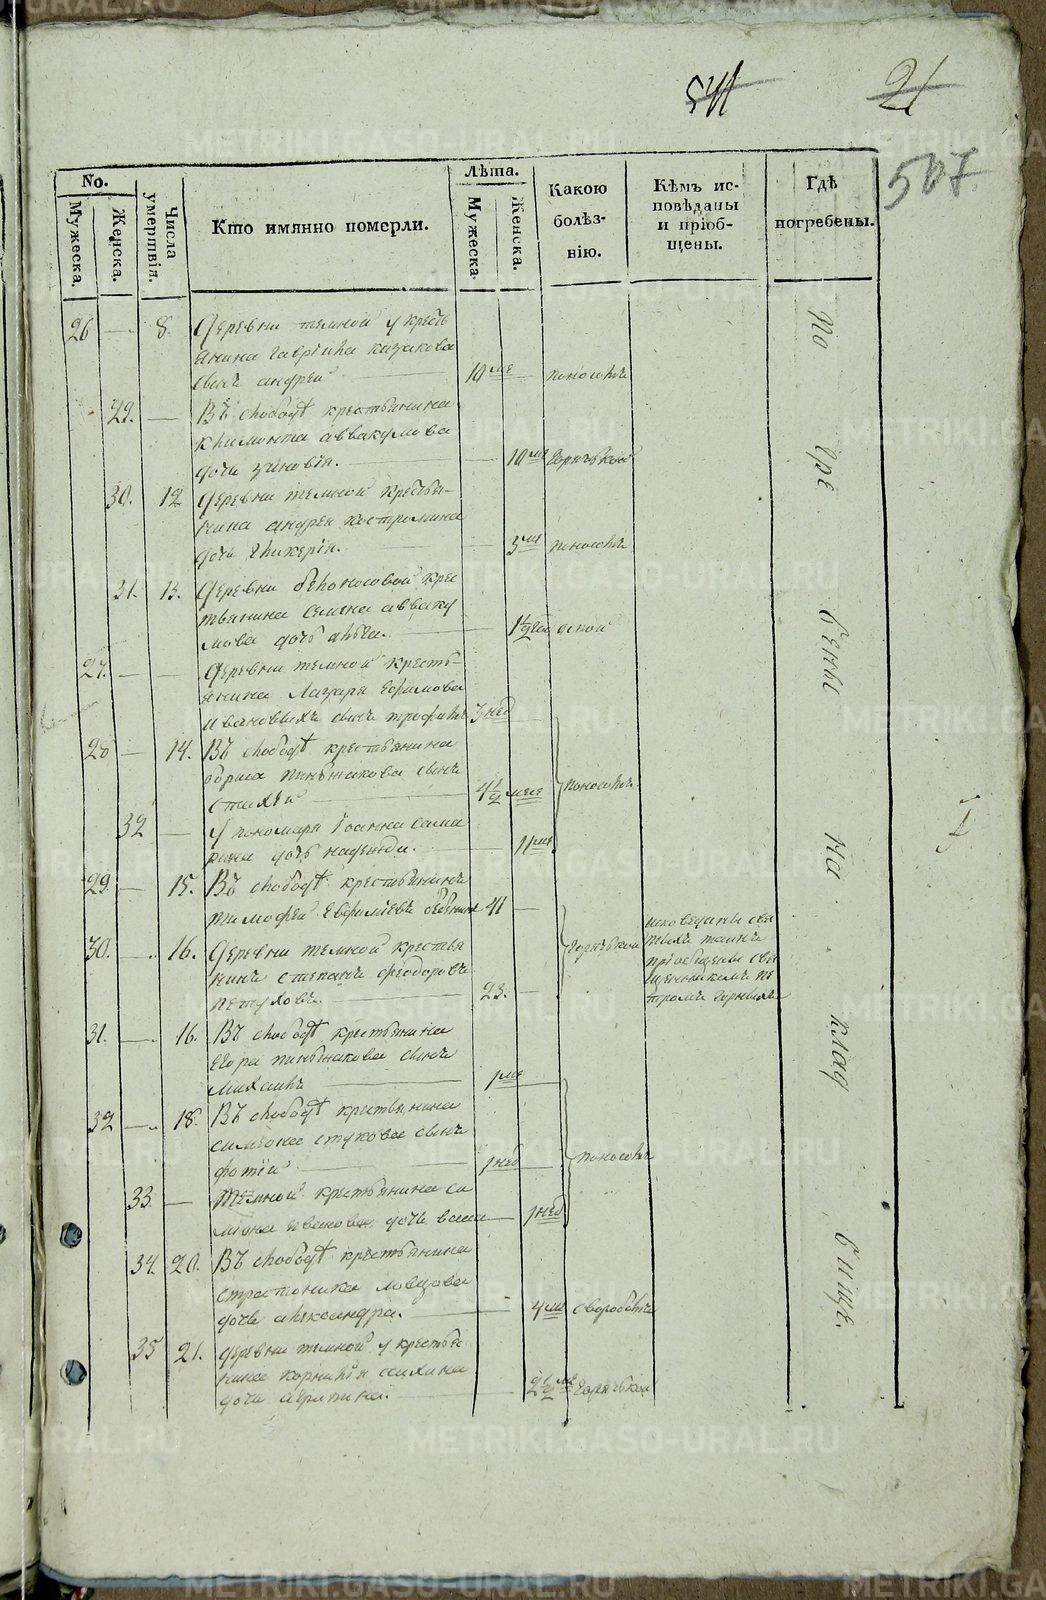 541 21
507
No.
Мужеска.
Женска.
Числа умертвія.
Кто имянно померли.
Лѣта.
Мужеска.
Женска.
Какою болѣз-нію.
Кѣмъ ис-
повѣданы
и пріоб-
щены.
Гдѣ
погребены.
26 — 8. Деревни темной у кресть
янина гаврила казакова
сынъ андрей — 10 ме — поносомъ
29. — Въ слободѣ крестьянина
климонта аввакумова
дочь зиновія. — 10 ме горячькой
30. 12 Деревни темной крестья-
нина андрея костромина
дочь гликерія. — 3 ме поносомъ
31. 13. Деревни белоносовой крес
тьянина семена авваку
мова дочь — 1½ год оспой
27. — — Деревни темной кресть-
янина Лазаря Ефимова
ивановыхъ сынъ трофимъ 3 нед —
28 — 14. Въ слободѣ крестьянина
бориса пинѣжакова сынъ
— 4½ меся поносомъ
32 — У пономаря Іоанна сама
рина дочь надежда. — 11 ме
29. — 15. Въ слободѣ крестьянинъ
тимофей Евфимьевъ 41 —
30. — 16. Деревни темной крестья
нинъ степанъ феодоровъ
петуховъ. — 23. — горячькой
исповеданы свя
тыхъ таинъ
пріобщены свя
щенникомъ пе
тромъ
31. — 16. Въ слободѣ крестьянина
Егора пинѣжакова сынъ
Михаилъ — 1 ме —
32 — 18. Въ слободѣ крестьянина
симеона стукова сынъ
фотій — 1 нед — поносомъ
33. — темной крестьянина си
мена иванова дочь васса — 1 нед
34. 20. Въ слободѣ крестьянина
стратоника ловцова
дочь александра. — 4 ме своробомъ
35 21. деревни темной у крестья
нина корнилія
дочь — 2½ ме горячькой
По
при
бены
на
клад
бище.